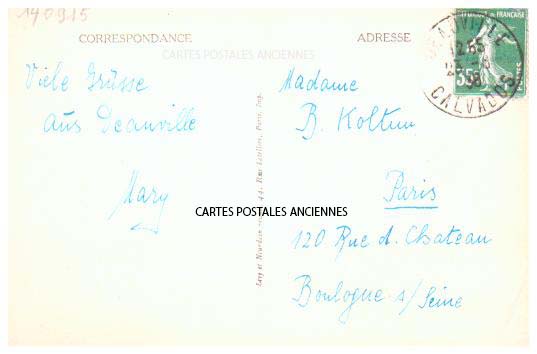 140915
CORRESPONDANCE
CARTES POSTALES ANCIENNES
ADRESSE
Viele Grüsse
aus Deauville
Mary
Madame
B. Koltun
Paris
120 Rue d. Chateau
Boulogne s/ Seine
CARTES POSTALES ANCIENNES
Levy et Neurdein 44, Rue Letellier, Paris, Imp.
FRANÇAISE
POSTES
DEAUVILLE
CALVADOS